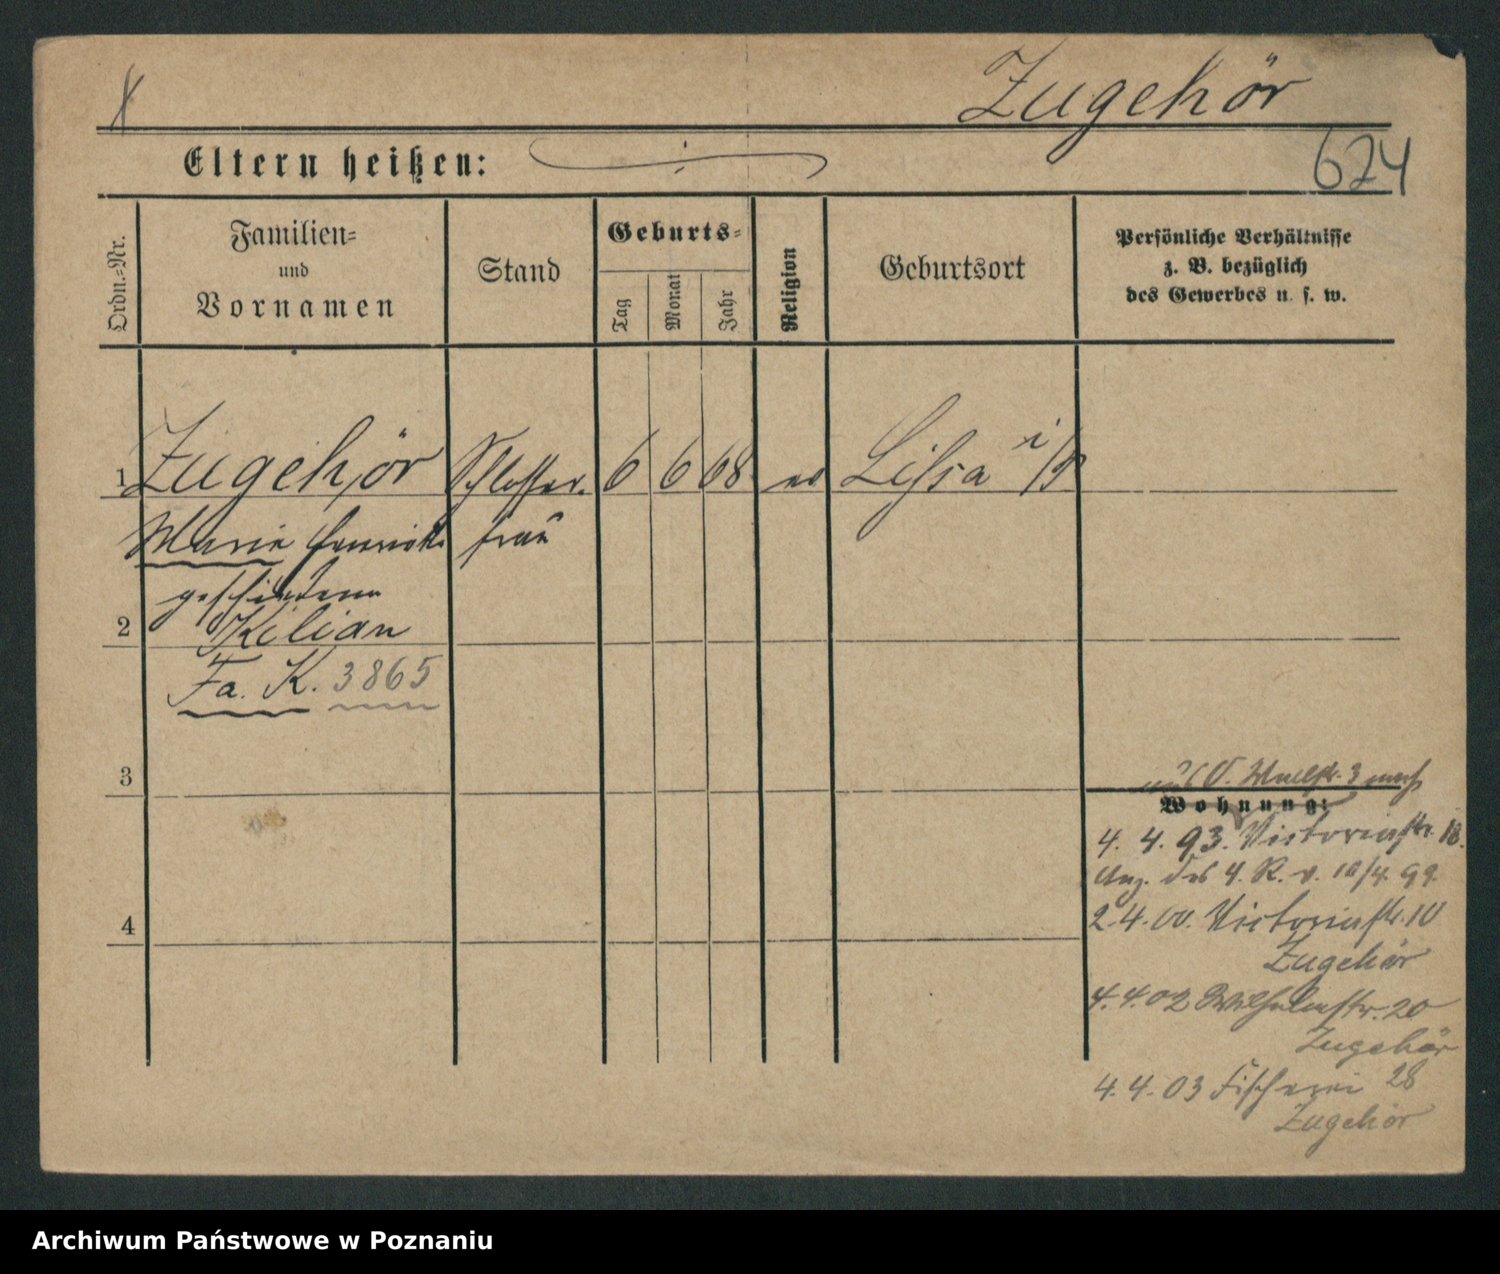 Zugehör
Eltern heißen:
624
Ordn.=Nr.
Familien=
und
Vornamen
Stand
Geburts=
Tag
Monat
Jahr
Religion
Geburtsort
Persönliche Verhältnisse
z. B. bezüglich
des Gewerbes u. s. w.
1 Zugehör Schlosser- 6 6 68 ev Lissa i/P
Marie Henriette frau
geschiedene
2 Kilian
Fa. K. 3865
3
4
Wallstr. 3
Wohnung:
4. 4. 93. Victoriastr. 18.
Anz. des 4. R. v. 10/4. 99.
2. 4. 00. Victoriastr. 10
Zugehör
4. 4. 02 Wilhelmstr. 20
Zugehör
4. 4. 03 Fischerei 28
Zugehör
Archiwum Państwowe w Poznaniu